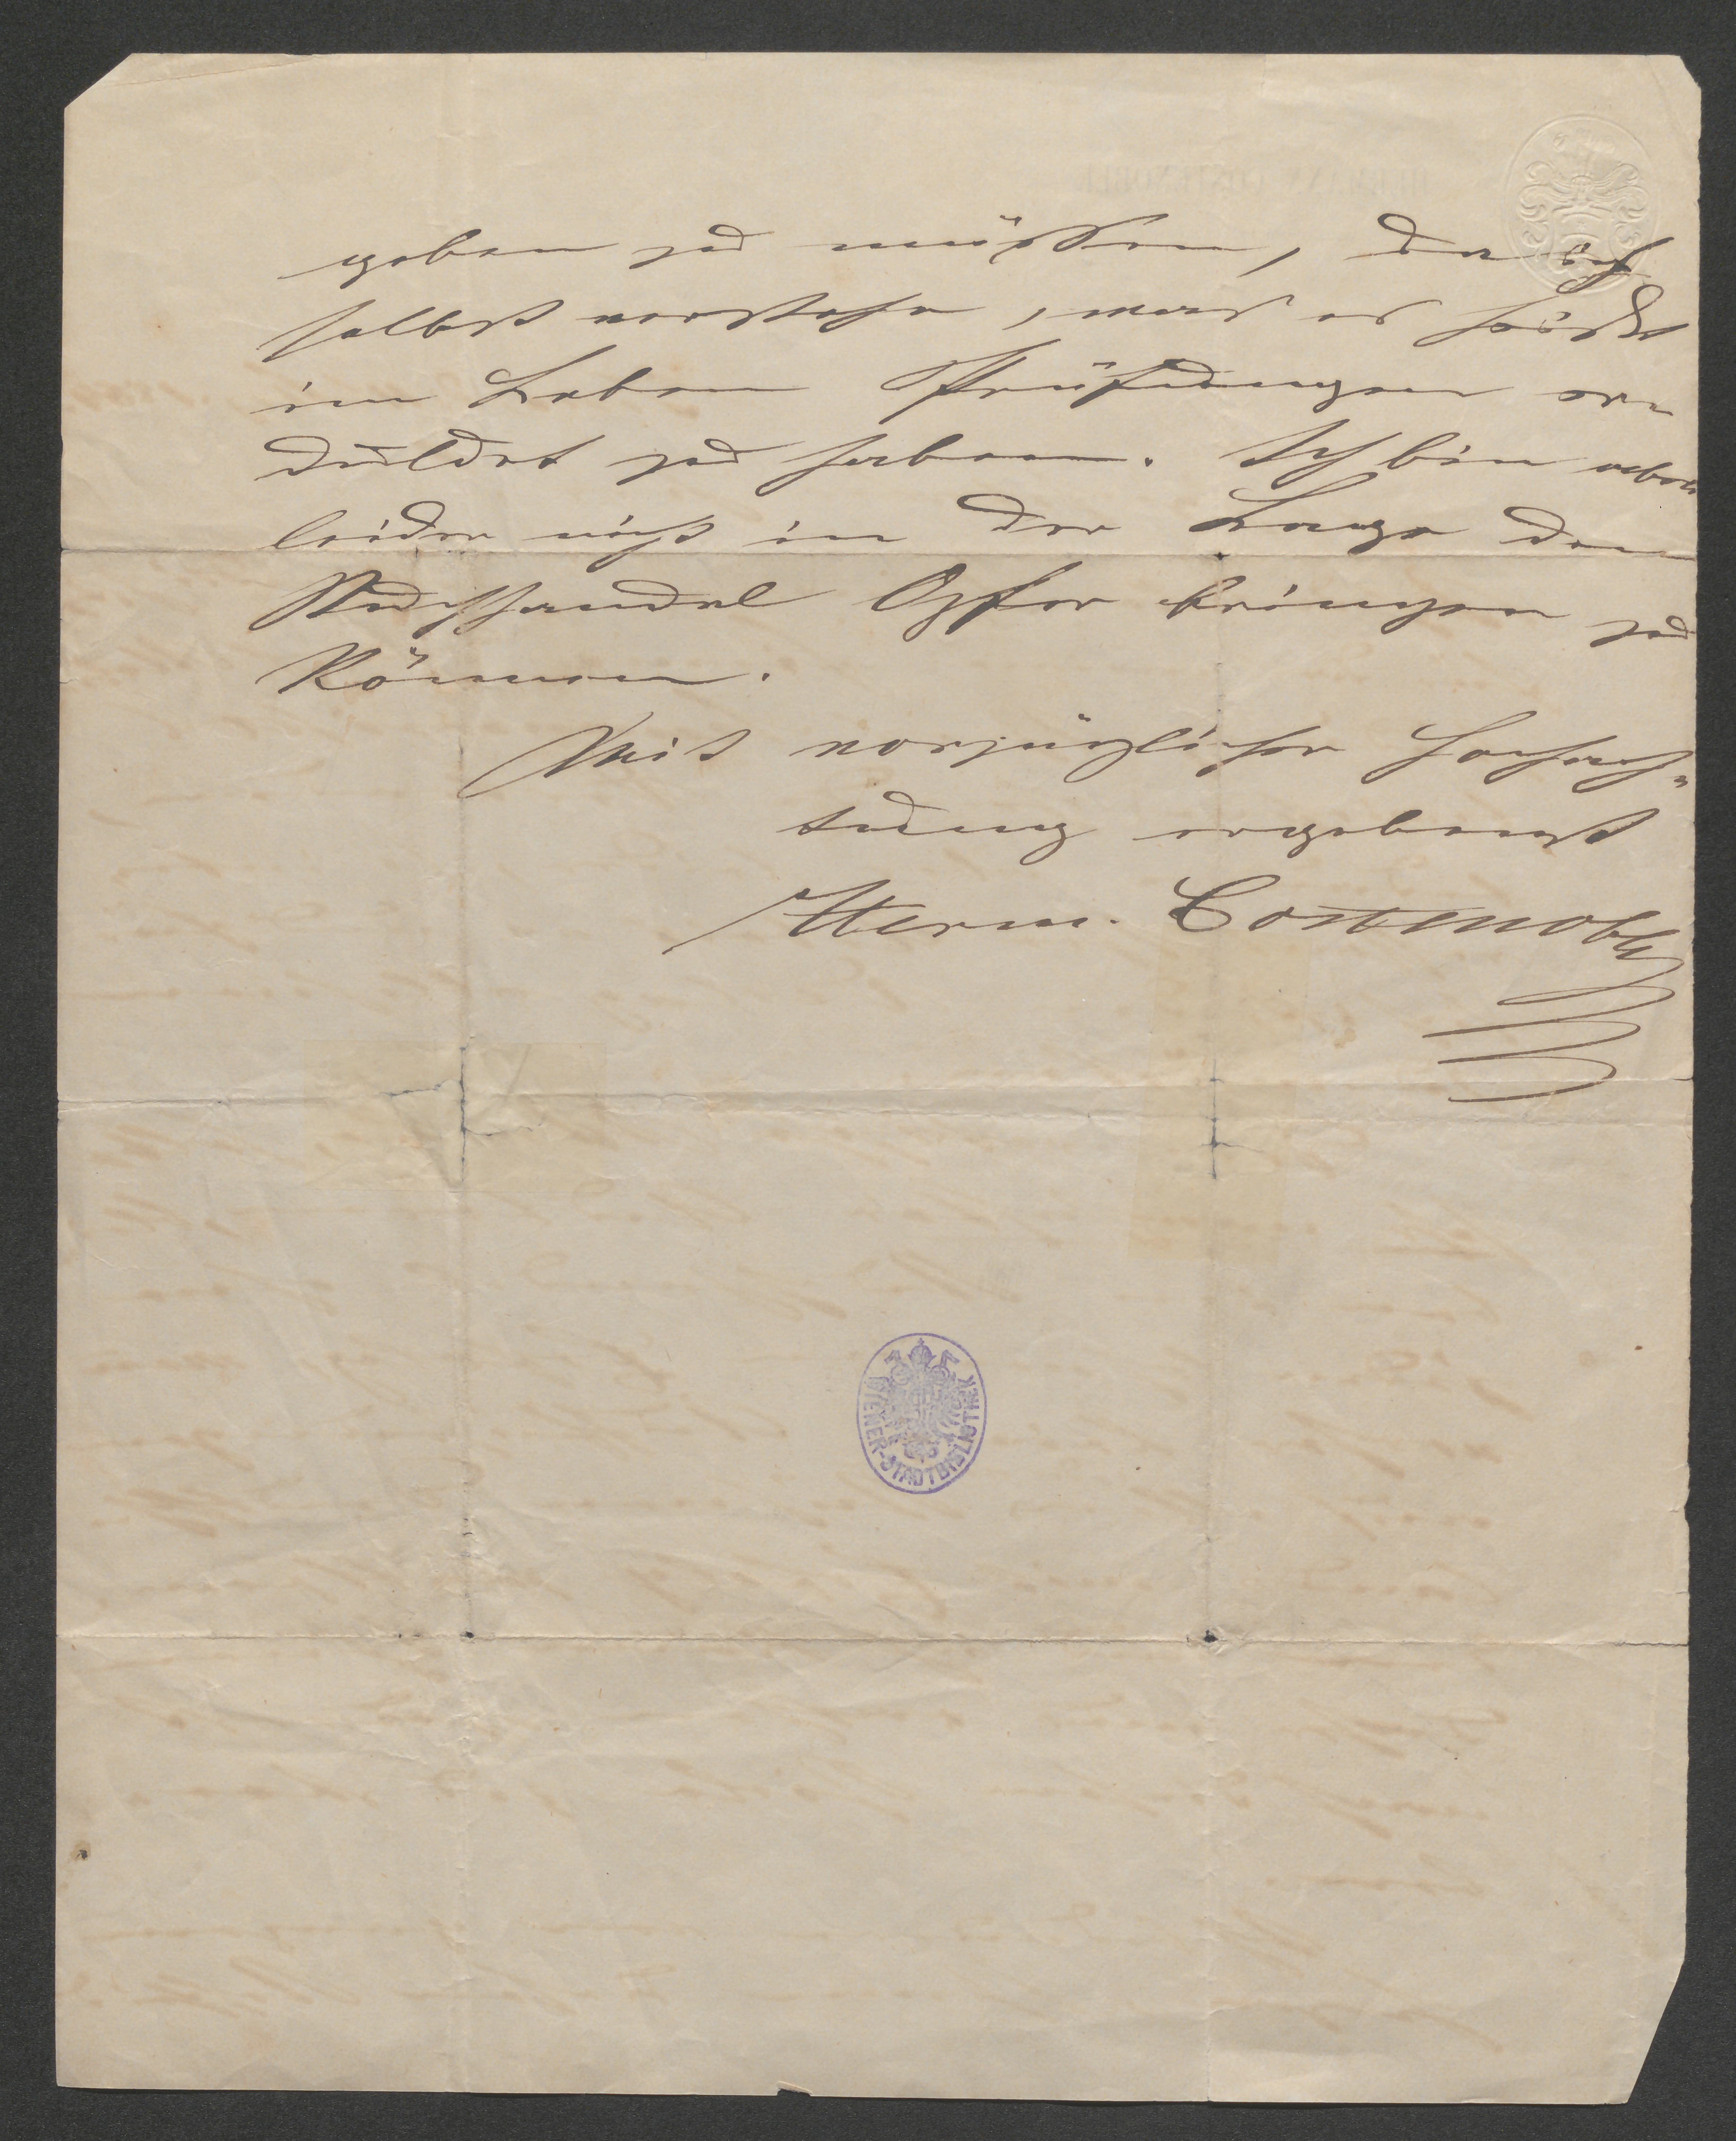 geben zu müssen, da ich
selbst verstehe, was es heißt
im Leben Prüfungen er
duldet zu haben. Ich bin aber
leider nicht in der Lage dem
Buchhandel Opfer bringen zu
können.
Mit vorzüglicher Hochach-
tung ergebenst
Herm. Costenoble
WIENER-STADTBIBLIOTHEK